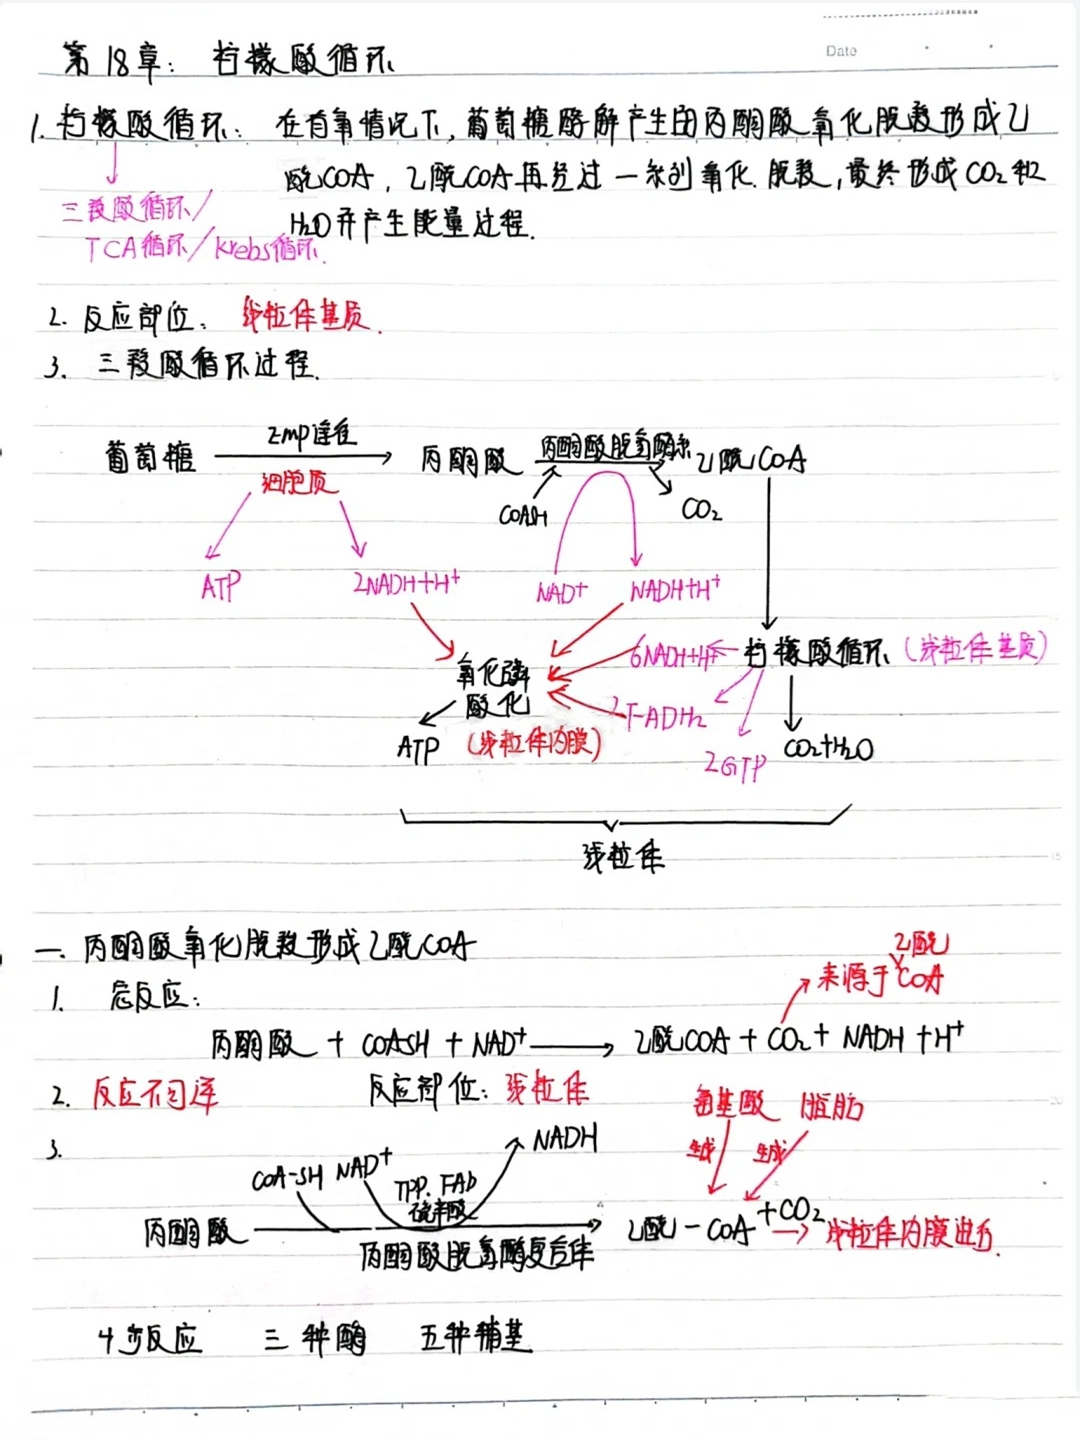 Date
第18章：柠檬酸循环
1. 柠檬酸循环：在有氧情况下，葡萄糖酵解产生的丙酮酸氧化脱羧形成乙
酰COA，乙酰COA再经过一系列氧化、脱羧，最终形成CO2和
三羧酸循环/
H2O并产生能量过程.
TCA循环/Krebs循环.
2. 反应部位：线粒体基质.
3. 三羧酸循环过程.
葡萄糖 EMP途径 丙酮酸 丙酮酸脱氢酶系 乙酰COA
细胞质
COASH CO2
ATP 2NADH+H+ NAD+ NADH+H+
氧化磷 6NADH+H+ 柠檬酸循环（线粒体基质）
酸化 2FADH2
ATP （线粒体内膜） 2GTP CO2+H2O
线粒体
一. 丙酮酸氧化脱羧形成乙酰COA
乙酰
1. 总反应： 来源于COA
丙酮酸 + COASH + NAD+ → 乙酰COA + CO2 + NADH + H+
2. 反应不可逆 反应部位：线粒体
氨基酸 脂肪
3. NADH 生成 生成
COA-SH NAD+ TPP. FAD
硫辛酸
丙酮酸 → 乙酰-COA +CO2 → 线粒体内膜进行.
丙酮酸脱氢酶复合体
4步反应 三种酶 五种辅基